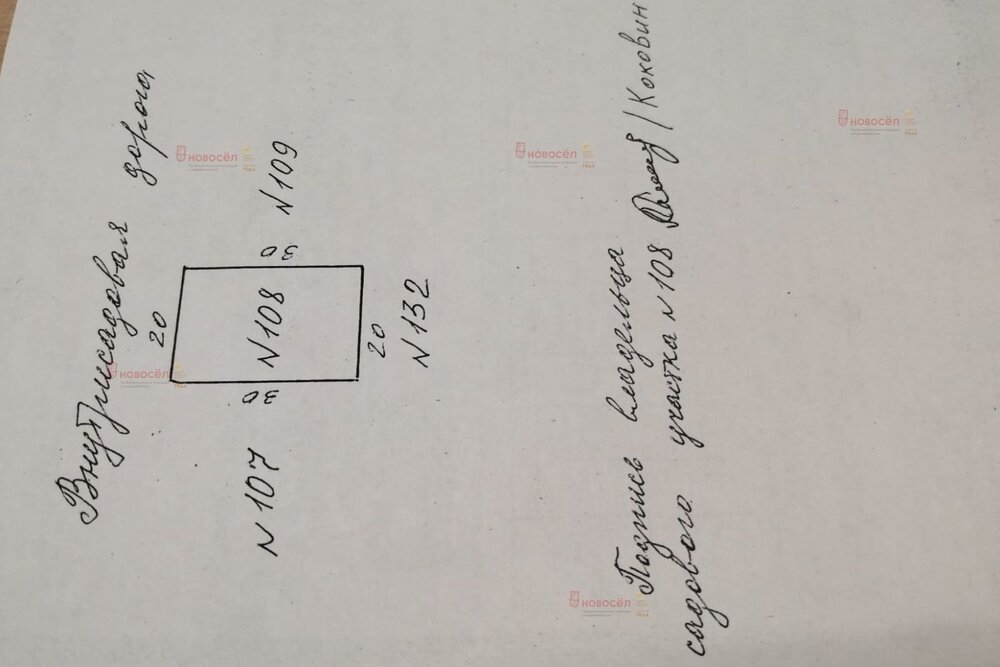 Внутрисадовая дорога
20
N107
30
N108
30
N109
20
N132
Подпись владельца
садового участка N108 /Коковин
НОВОСЁЛ
НОВОСЁЛ
НОВОСЁЛ
НОВОСЁЛ
НОВОСЁЛ